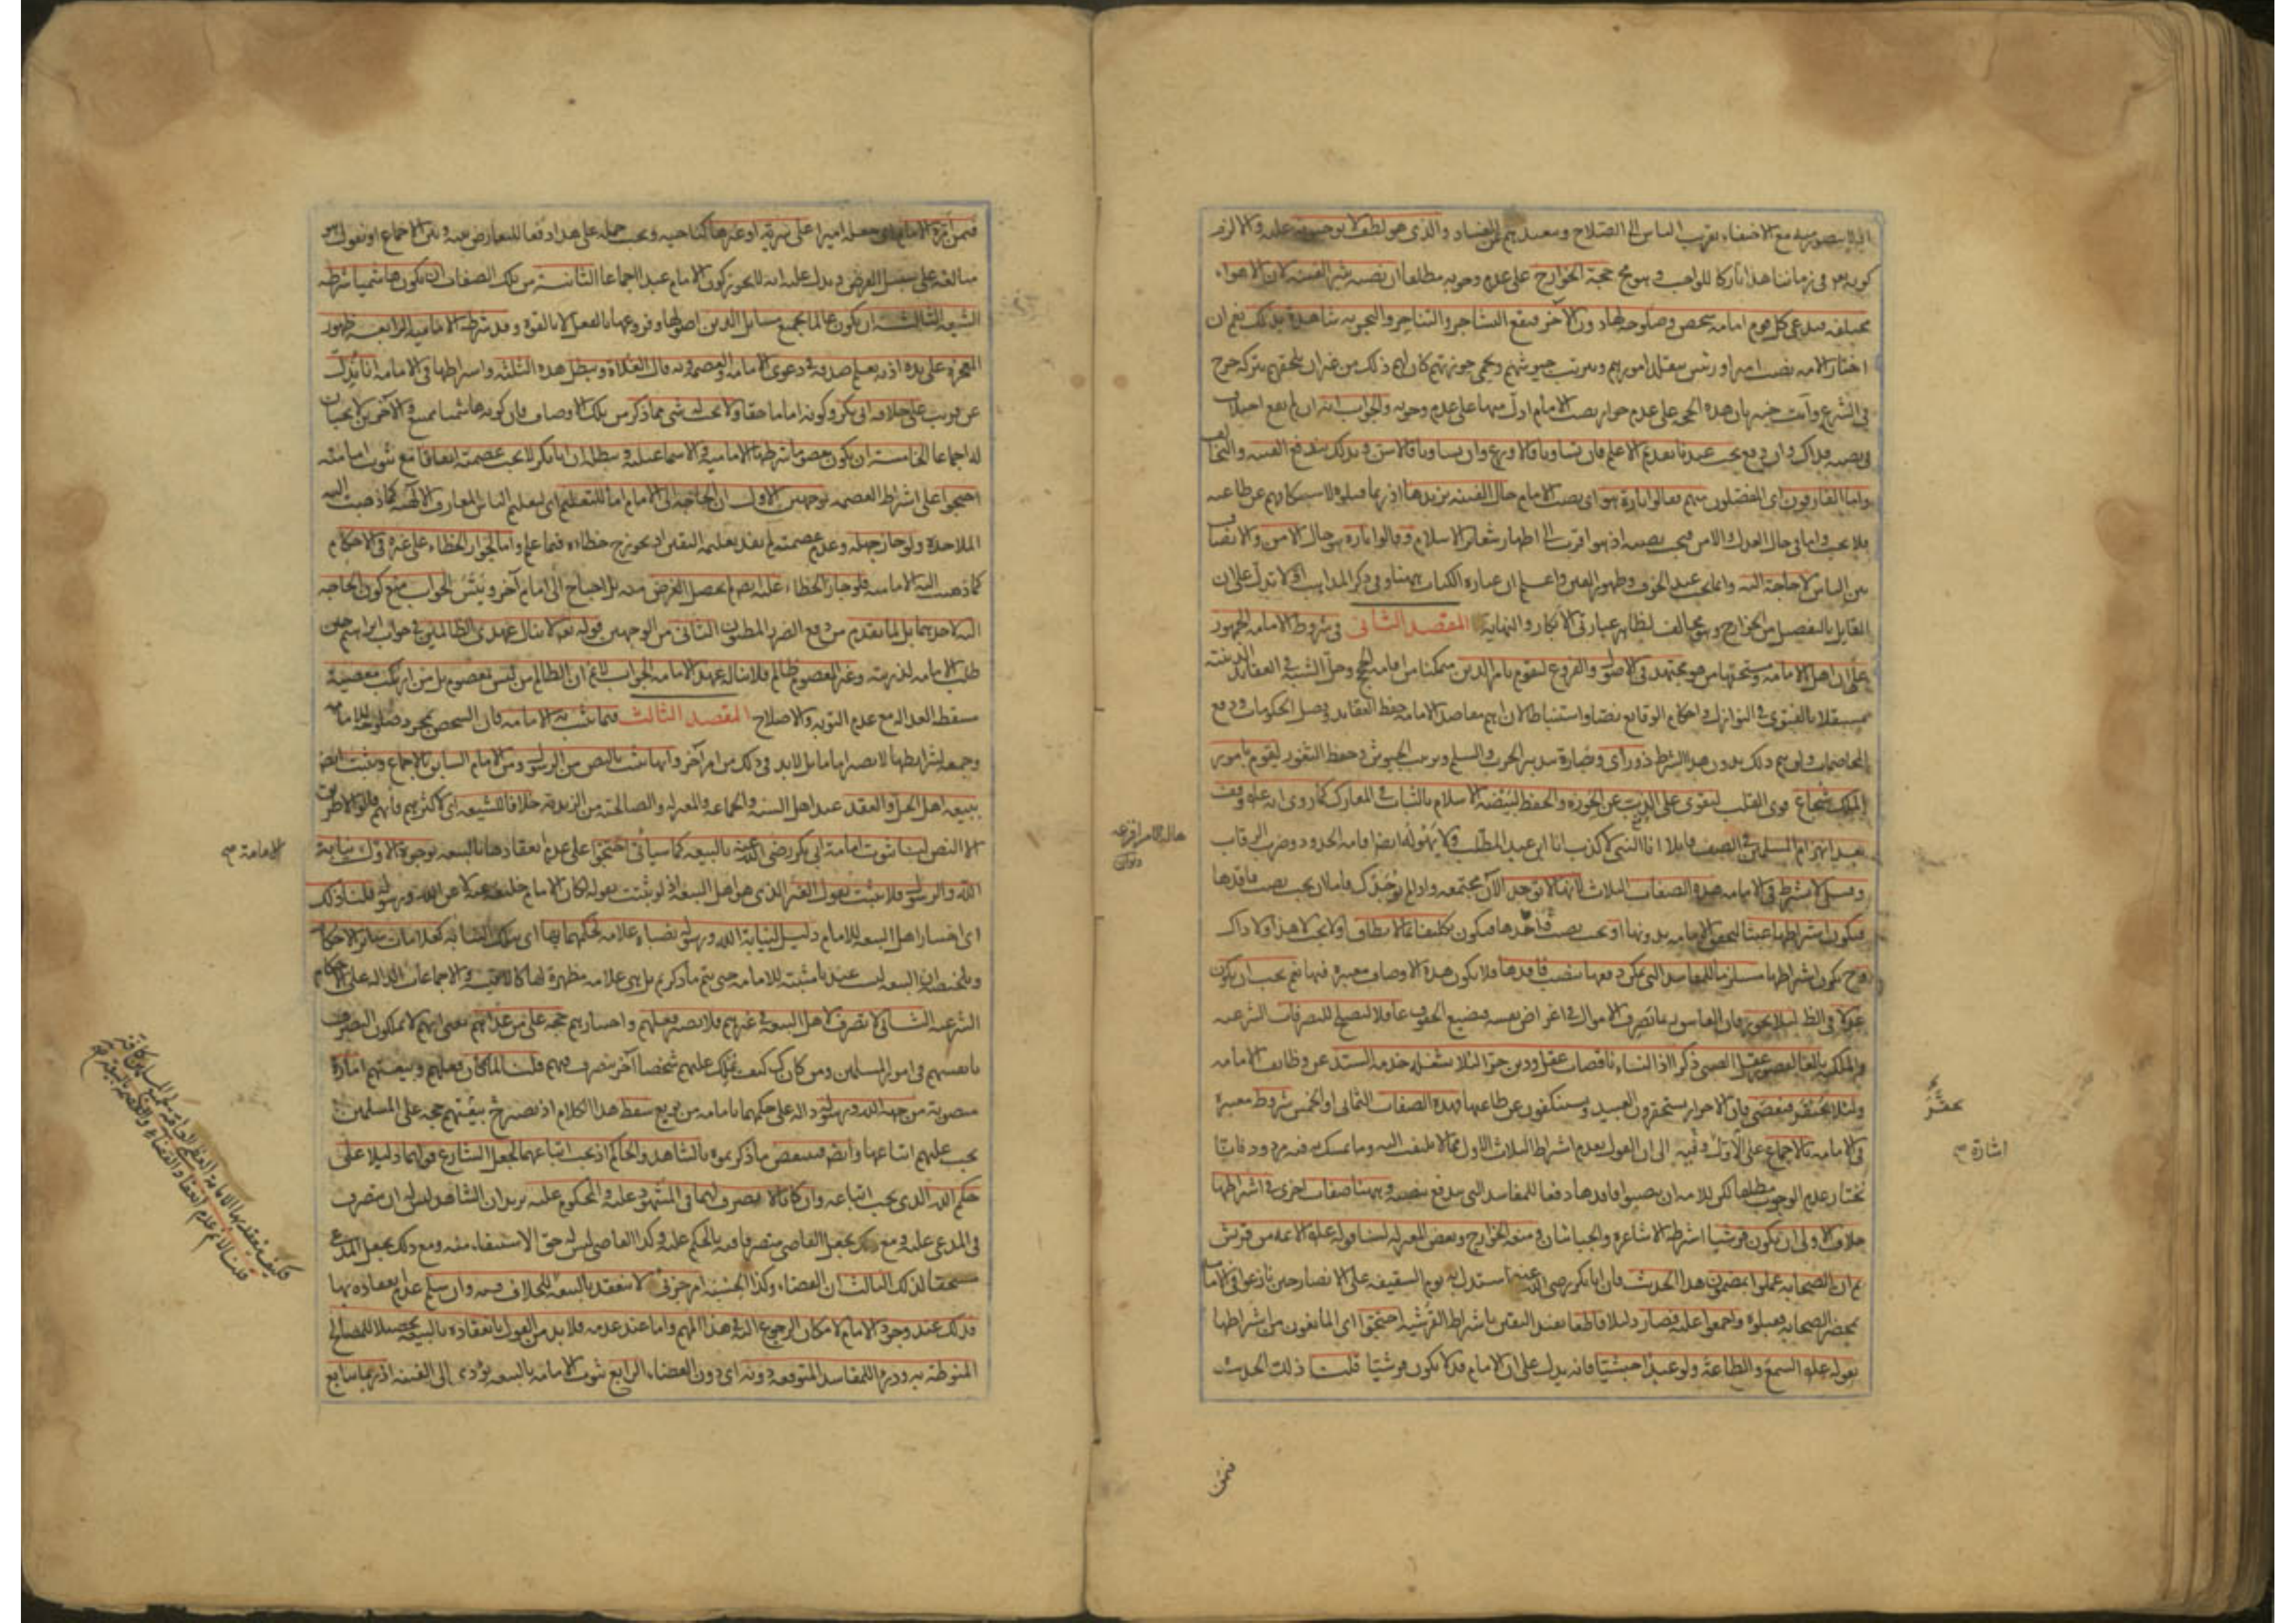 اذ لا يتصور منه مع الاختفاء تقريب الناس الى الصلاح وتبعيدهم عن الفساد والذي هو لطف لا توجبونه عليه والا لزم
كونه تعالى في زماننا هذا تاركا للواجب وهو محال حجة الخوارج على عدم وجوبه مطلقا ان نصبه يثير الفتنة لان الاهواء
مختلفة فيدعي كل قوم امامة شخص وصلوحه لها دون الآخر فيقع التشاجر والتناجر والتجربة شاهدة بذلك نعم ان
اختار الامة نصب امير او رئيس يتقلد امورهم ويرتب جيوشهم ويحمي حوزتهم كان لهم ذلك من غير ان يلحقهم بتركه حرج
في الشرع وانت خبير بان هذه الحجة على عدم جواز نصب الامام ادل منها على عدم وجوبه والجواب انه ان لم يقع اختلاف
في نصبه فذاك وان وقع يجب عندنا تقديم الاعلم فان تساويا فالاورع وان تساويا فالاسن وبذلك تندفع الفتنة والتخالف
واما الفارقون اى المفصلون منهم فقالوا تارة هو اى نصب الامام حال الفتنة يزيدها اذ ربما قتلوه لاستنكافهم عن طاعته
فلا يجب واما في حال العدل والامن فيجب نصبه اذ هو اقرب الى اظهار شعائر الاسلام وقالوا تارة هو حال الامن والانصاف
بين الناس لا حاجة اليه وانما يجب عند الخوف وظهور الفتن واعلم ان عبارة الكتاب ههنا وفي ذكر المذاهب اولا تدل على ان
القايل بالتفصيل من الخوارج وهو مخالف لظاهر عبارتي الابكار والنهاية المقصد الثاني في شروط الامامة الجمهور
على ان اهل الامامة ومستحقها من هو مجتهد في الاصول والفروع ليقوم بامر الدين متمكنا من اقامة الحجج وحل الشبه في العقايد الدينية
مستقلا بالفتوى في النوازل واحكام الوقايع نصا واستنباطا لان اهم مقاصد الامامة حفظ العقايد وفصل الحكومات ورفع
المخاصمات ولن يتم ذلك بدون هذا الشرط ذو رأى وبصارة بتدبير الحرب والسلم وترتيب الجيوش وحفظ الثغور ليقوم بامور
الملك شجاع قوى القلب ليقوى على الذب عن الحوزة والحفظ لبيضة الاسلام بالثبات في المعارك كما روى انه عليه السلام وقف
بعد انهزام المسلمين في الصف قايلا انا النبي لا كذب انا ابن عبد المطلب ولا يهوله ايضا اقامة الحدود وضرب الرقاب
وقيل لا يشترط في الامامة هذه الصفات الثلاث لانها لا توجد الآن مجتمعة واذا لم توجد كذلك فاما ان يجب نصب فاقدها
فيكون اشتراطها عبثا لتحقق الامامة بدونها او يجب نصب واجدها فيكون تكليفا بما لا يطاق اولا يجب لا هذا ولا ذاك
وح يكون اشتراطها مستلزما للمفاسد التي يمكن دفعها بنصب فاقدها فلا يكون هذه الاوصاف معتبرة فيها نعم يجب ان يكون
عدلا في الظ لئلا يجور فان الفاسق ربما يصرف الاموال في اغراض نفسه فيضيع الحقوق عاقلا ليصلح للتصرفات الشرعية
والملكية بالغا لقصور عقل الصبى ذكرا اذ النساء ناقصات عقل ودين حرا لئلا يشغله خدمة السيد عن وظايف الامامة
ولئلا يحتقر فيعصى فان الاحرار يستحقرون العبيد ويستنكفون عن طاعتها فهذه الصفات الثماني او الخمس شروط معتبرة
في الامامة بالاجماع على الاول وفيه الى ان القول بعدم اشتراط الثلاث الاول مما لا يلتفت اليه وما تمسك به فيه مردود فانا
نختار عدم الوجوب مطلقا لكن للامة ان ينصبوا فاقدها دفعا للمفاسد التي تندفع بنصبه وههنا صفات اخرى في اشتراطها
خلاف الاولى ان يكون قرشيا اشترطه الاشاعرة والجبائيان ومنعه الخوارج وبعض المعتزلة لنا قوله عليه السلام الائمة من قريش
ثم ان الصحابة عملوا بمضمون هذا الحديث فان ابا بكر رضى الله عنه استدل به يوم السقيفة على الانصار حين نازعوا في الامامة
بمحضر الصحابة فقبلوه واجمعوا عليه فصار دليلا قاطعا يفيد اليقين باشتراط القرشية احتجوا اى المانعون من اشتراطها
بقوله عليه السلام السمع والطاعة ولو عبدا حبشيا فانه يدل على ان الامام قد لا يكون قرشيا قلنا ذلك الحديث
فيمن
اشارة
فيمن امّره الامام اى جعله اميرا على سرية او غيرها كناحية ويجب حمله على هذا دفعا للتعارض بينه وبين الاجماع او نقول هو
مبالغة على سبيل الفرض ويدل عليه انه لا يجوز كون الامام عبدا اجماعا الثانية من تلك الصفات ان يكون هاشميا شرطه
الشيعة الثالثة ان يكون عالما بجميع مسايل الدين اصولها وفروعها بالفعل لا بالقوة وقد شرطه الامامية الرابعة ظهور
المعجزة على يده اذ به يعلم صدقه في دعوى الامامة والعصمة وبه قال الغلاة ويبطل هذه الثلثة واشتراطها في الامامة انا ندل
عن قريب على خلافة ابي بكر وكونه اماما حقا ولا يجب له شي مما ذكر من تلك الاوصاف فان كونه هاشميا ممتنع والآخرين لا يجبان
له اجماعا الخامسة ان يكون معصوما شرطها الامامية والاسماعيلية ويبطله ان ابا بكر لا يجب عصمته اتفاقا مع ثبوت امامته
احتجوا على اشتراط العصمة بوجهين الاول ان الحاجة الى الامام اما للتعليم اى ليعلم الناس المعارف الالهية كما ذهبت اليه
الملاحدة ولو جاز جهله وعدم عصمته لم يفد تعليمه اليقين اذ يجوز ح خطاءه فيما علم واما لجواز الخطاء على غيره في الاحكام
كما ذهبت اليه الامامية فلو جاز الخطاء عليه ايضا لم يحصل الغرض منه بل احتاج الى امام آخر ويتسلسل الجواب منع كون الحاجة
اليه لاحدهما بل لما تقدم من دفع الضرر المظنون الثاني من الوجهين قوله تعه لا ينال عهدى الظالمين في جواب ابراهيم حين
طلب الامامة لذريته وغير المعصوم ظالم فلا يناله عهد الامامة الجواب لانم ان الظالم من ليس بمعصوم بل من ارتكب معصية
مسقطة للعدالة مع عدم التوبة والاصلاح المقصد الثالث فيما تثبت به الامامة فان الشخص بمجرد صلوحه للامامة
وجمعه لشرايطها لا يصير اماما بل لا بد في ذلك من امر آخر وانها تثبت بالنص من الرسول ومن الامام السابق بالاجماع وتثبت ايضا
ببيعة اهل الحل والعقد عند اهل السنة والجماعة والمعتزلة والصالحية من الزيدية خلافا للشيعة اى لاكثرهم فانهم قالوا لا طريق
الا النص لنا ثبوت امامة ابي بكر رضى الله عنه بالبيعة كما سيأتي احتجوا على عدم انعقادها بالبيعة بوجوه الاول نيابة
الله والرسول فلا تثبت بقول الغير الذى هو اهل البيعة اذ لو ثبتت بقوله لكان الامام خليفة عنه لا عن الله ورسوله قلنا ذلك
اى اختيار اهل البيعة للامام دليل لنيابة الله ورسوله نصباه علامة لحكمهما بها اى بتلك النيابة كعلامات سائر الاحكام
وتلخيصه ان البيعة ليست عندنا مثبتة للامامة حتى يتم ما ذكرتم بل هي علامة مظهرة لها كالاقيسة والاجماعات الدالة على الاحكام
الشرعية الثاني لا تصرف لاهل البيعة في غيرهم فلا يصير فعلهم واختيارهم حجة على من عداهم بمعنى انهم لا يملكون التصرف
بانفسهم في امور المسلمين ومن كان ك كيف يملك عليهم شخصا آخر يتصرف فيهم قلنا لما كان فعلهم وبيعتهم امارة
منصوبة من جهة الله ورسوله دالة على حكمهما بامامة من بويع سقط هذا الكلام اذ تصير ح بيعتهم حجة على المسلمين
يجب عليهم اتباعها وايضا فينتقض ما ذكرتموه بالشاهد والحاكم اذ يجب اتباعهما لجعل الشارع قولهما دليلا على
حكم الله الذى يجب اتباعه وان كانا لا تصرف لهما في المشهود عليه والمحكوم عليه يريد ان الشاهد ليس له ان يتصرف
في المدعى عليه ومع ذلك يجعل القاضى متصرفا فيه بالحكم عليه وكذا القاضى ليس له حق الاستيفاء منه ومع ذلك يجعل المدعي
مستحقا لذلك الثالث ان القضاء وكذا الحسبة امر جزئي لا ينعقد بالبيعة للخلاف فيه وان سلم عدم انعقاده بها
فذلك عند وجود الامام لامكان الرجوع اليه في هذا المهم واما عند عدمه فلا بد من القول بانعقاده بالبيعة تحصيلا للمصالح
المنوطة به ودرءا للمفاسد المتوقعة دونه اى دون القضاء الرابع ثبوت الامامة بالبيعة يؤدى الى الفتنة اذ ربما تبايع
الامامة
فكيف ينعقد بها الامامة العظمى
قلنا لانم عدم انعقاد القضاء